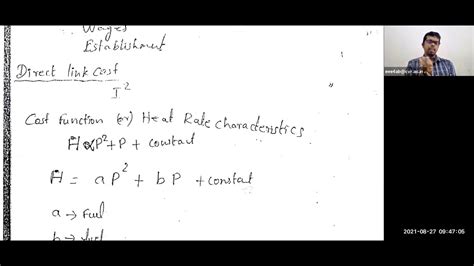 Wages
Establishment
Direct link cost
I²
Cost Function (or) Heat Rate characteristics
Ḣ ∝ P² + P + constant
Ḣ = aP² + bP + constat
a → Fuel
b →
2021-08-27 09:47:05